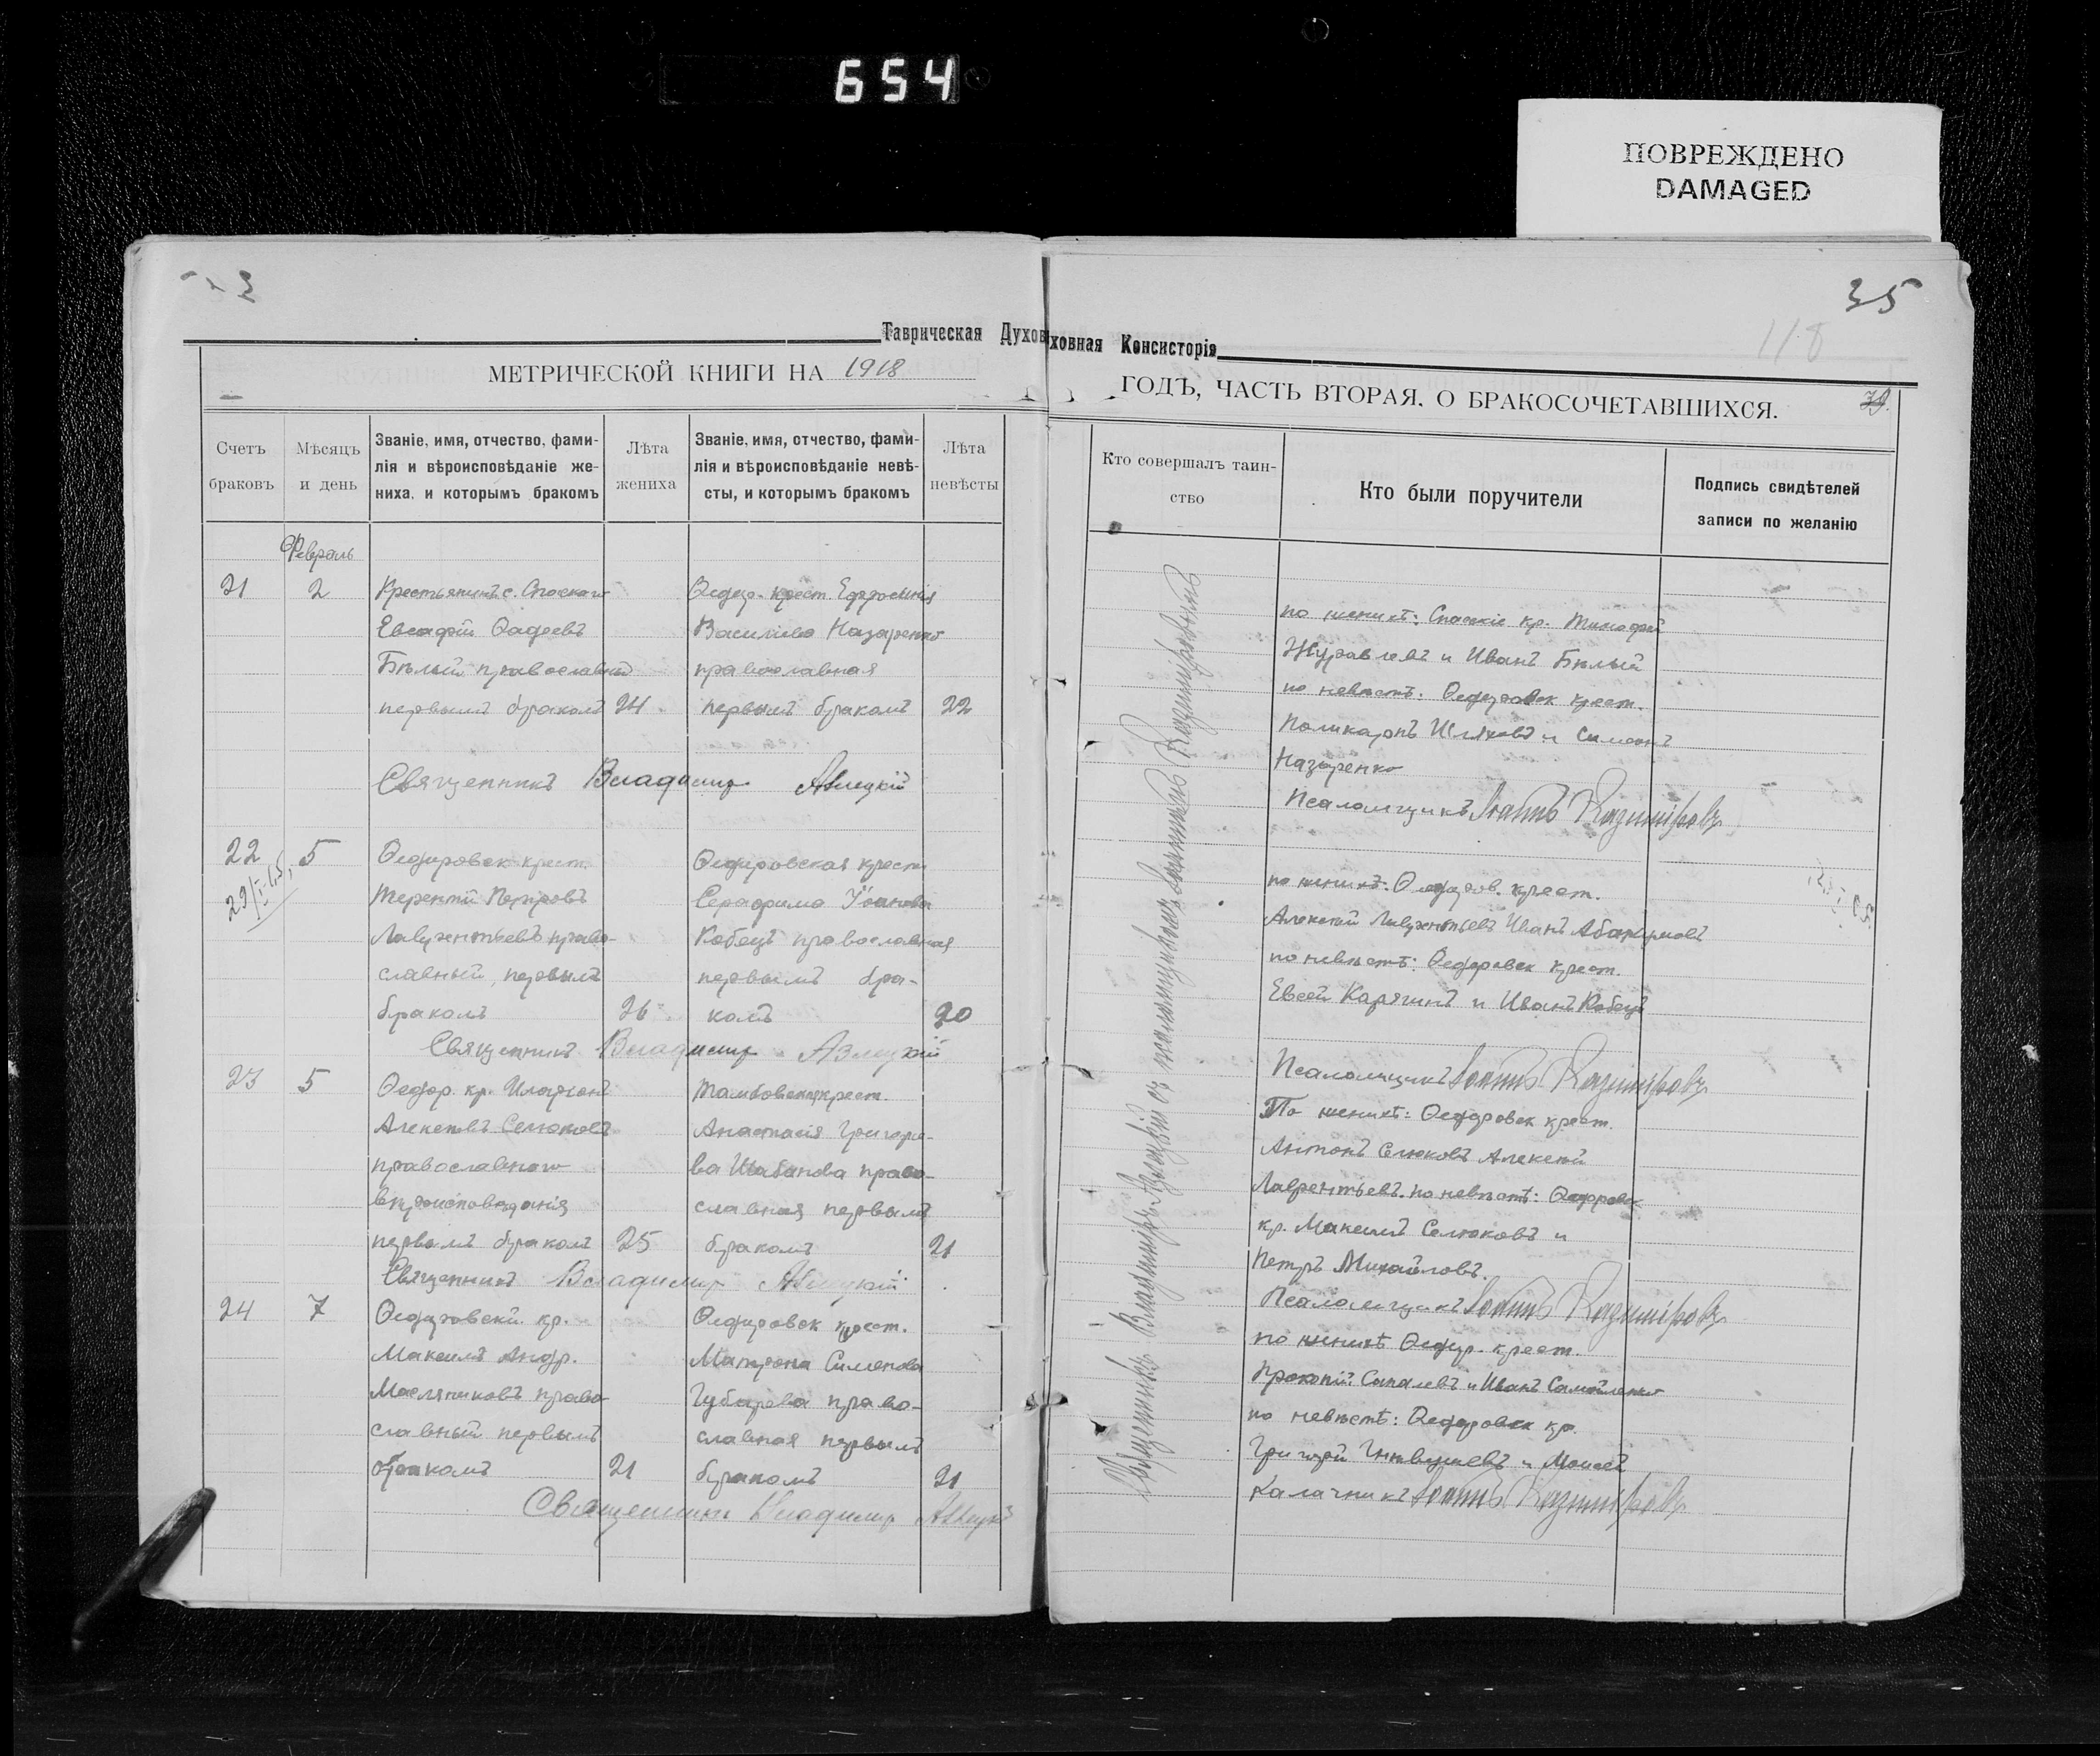 654
ПОВРЕЖДЕНО
DAMAGED
3
Таврическая Духов
МЕТРИЧЕСКОЙ КНИГИ НА 1918
Счетъ браковъ
Мѣсяцъ и день
Званіе, имя, отчество, фами-
лія и вѣроисповѣданіе же-
ниха, и которымъ бракомъ
Лѣта жениха
Званіе, имя, отчество, фами-
лія и вѣроисповѣданіе невѣ-
сты, и которымъ бракомъ
Лѣта невѣсты
Февраль
21 2
Крестьянинъ с. Спаскаго
Евстафій Фадеевъ
Бѣлый православный
первымъ бракомъ 24
Федор. крест. Ефросинія
Василіева Назаренко
православная
первымъ бракомъ 22
Священникъ Владимир
22 5
Федоровск крест.
Терентій Петровъ
Лаврентьевъ право-
славный, первымъ
бракомъ 26
Федоровская крест
Серафима Иванова
Кобецъ православная
первымъ бра-
комъ 20
Священникъ Владимир
23 5
Федор. кр. Иларіонъ
Алексѣевъ Селюковъ
православнаго
вѣроисповѣданія
первымъ бракомъ 25
Тамбовск крест.
Анастасія Григорье-
ва Шабанова право-
славная первымъ
бракомъ 21
Священникъ Владимир
24 7
Федоровскй кр.
Максимъ Андр.
Масляниковъ право
славный первымъ
бракомъ 21
Федоровск крест.
Матрона Симонова
Губарева право-
славная первымъ
бракомъ 21
Священник Владимир
35
118
ховная Консисторія
ГОДЪ, ЧАСТЬ ВТОРАЯ, О БРАКОСОЧЕТАВШИХСЯ.
Кто совершалъ таин-
ство
Кто были поручители
Подпись свидѣтелей
записи по желанію
Священникъ Владиміръ съ псаломщикомъ Іоанномъ Казиміровымъ
по женихѣ: Спаскіе кр. Тимофей
Журавлевъ и Иванъ Бѣлый
по невѣстѣ: Федоровск крест.
Поликарпъ и Симеонъ
Назаренко
Псаломщикъ Іоаннъ Казиміровъ
по женихѣ: Федоров. крест.
Алексей Лаврентьевъ Иванъ Абакумовъ
по невѣстѣ: Федоровск крест.
Евсей Карягинъ и Иванъ Кобецъ
Псаломщикъ Іоаннъ Казиміровъ
По женихѣ: Федоровск крест.
Антонъ Селюковъ Алексей
Лаврентьевъ. по невѣстѣ: Федоровск
кр. Максимъ Селюковъ и
Петръ Михайловъ.
Псаломщикъ Іоаннъ Казиміровъ
по женихѣ Федор. крест.
Прокопій и Иванъ Самойленко
по невѣстѣ: Федоровск кр.
Григорій и Моисей
Калачник Іоаннъ Казиміровъ